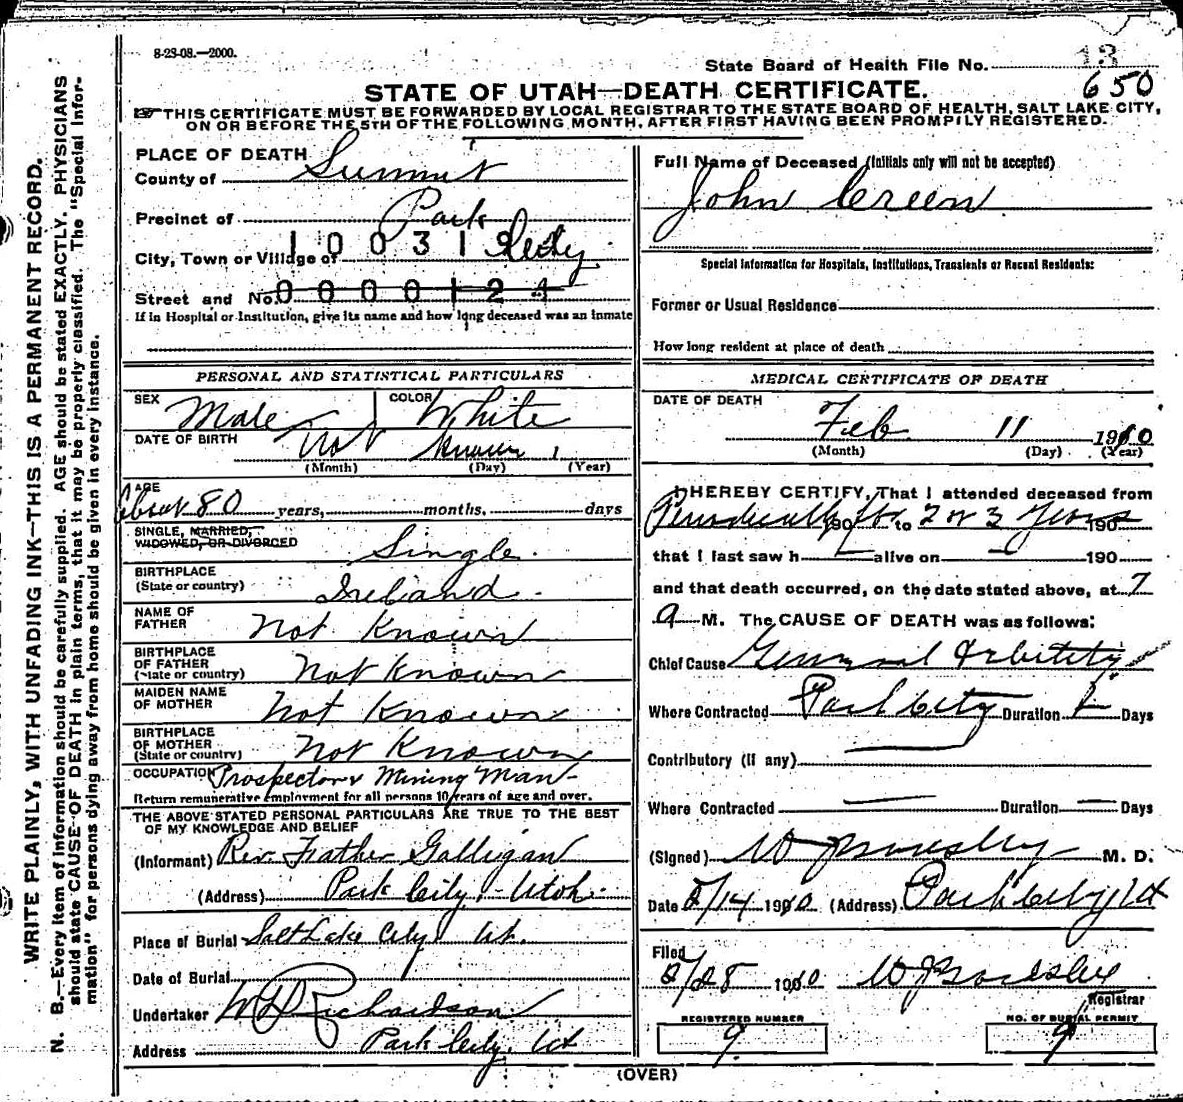 8-23-08.—2000.
State Board of Health File No. 13
650
STATE OF UTAH—DEATH CERTIFICATE.
THIS CERTIFICATE MUST BE FORWARDED BY LOCAL REGISTRAR TO THE STATE BOARD OF HEALTH, SALT LAKE CITY,
ON OR BEFORE THE 5TH OF THE FOLLOWING MONTH, AFTER FIRST HAVING BEEN PROMPTLY REGISTERED.
WRITE PLAINLY, WITH UNFADING INK—THIS IS A PERMANENT RECORD.
N. B.—Every item of information should be carefully supplied. AGE should be stated EXACTLY. PHYSICIANS
should state CAUSE OF DEATH in plain terms, that it may be properly classified. The "Special Infor-
mation" for persons dying away from home should be given in every instance.
PLACE OF DEATH
County of Summit
Precinct of Park
City, Town or Village of City
1 0 0 3 1
Street and No.
0 0 0 0 1 2 4
If in Hospital or Institution, give its name and how long deceased was an inmate
PERSONAL AND STATISTICAL PARTICULARS
SEX Male COLOR White
DATE OF BIRTH Not Known
(Month) (Day) (Year)
AGE
About 80 years, months, days
SINGLE, MARRIED,
WIDOWED, OR DIVORCED Single
BIRTHPLACE
(State or country) Ireland
NAME OF
FATHER Not Known
BIRTHPLACE
OF FATHER
(State or country) Not Known
MAIDEN NAME
OF MOTHER Not Known
BIRTHPLACE
OF MOTHER
(State or country) Not Known
OCCUPATION Prospector & Mining Man
Return remunerative employment for all persons 10 years of age and over.
THE ABOVE STATED PERSONAL PARTICULARS ARE TRUE TO THE BEST
OF MY KNOWLEDGE AND BELIEF
(Informant) Rev. Father Galligan
(Address) Park City, Utah.
Place of Burial Salt Lake City Ut.
Date of Burial
Undertaker W D Richardson
Address Park City, Ut
Full Name of Deceased (Initials only will not be accepted)
John Green
Special Information for Hospitals, Institutions, Transients or Recent Residents:
Former or Usual Residence
How long resident at place of death
MEDICAL CERTIFICATE OF DEATH
DATE OF DEATH
Feb 11 1910
(Month) (Day) (Year)
I HEREBY CERTIFY, That I attended deceased from
Periodically 190 for to 2 or 3 years 190
that I last saw h — alive on — 190
and that death occurred, on the date stated above, at 7
A M. The CAUSE OF DEATH was as follows:
Chief Cause General Debility
Where Contracted Park City Duration Days
Contributory (if any)
Where Contracted — Duration — Days
(Signed) M. D.
Date 2/14 1910 (Address) Park City Ut
Filed
2/28 1910
Registrar
REGISTERED NUMBER
9
NO. OF BURIAL PERMIT
9
(OVER)